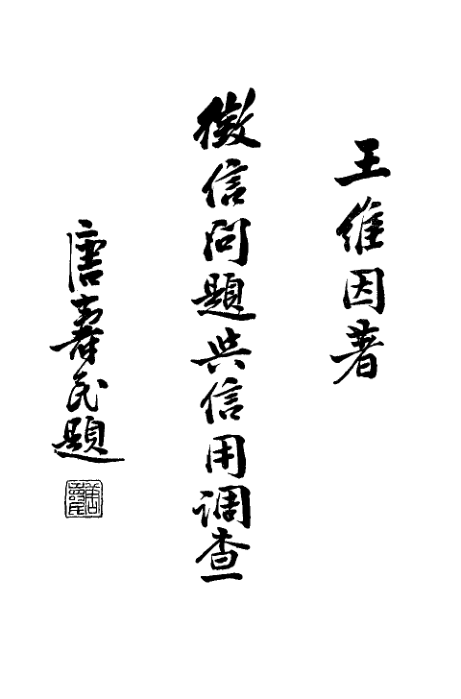 王維因著
徵信問題與信用調查
唐壽民題